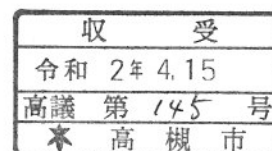 収受
令和 2年 4.15
高議 第 145 号
高槻市